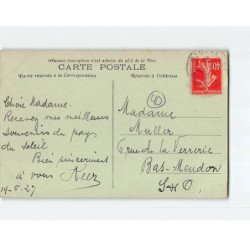 Aucune inscription n'est admise du côté de la Vue
CARTE POSTALE
Partie réservée à la Correspondance
Réservée à l'Adresse
Chère Madame
Recevez mes meilleurs
souvenirs du pays
du soleil
Bien sincèrement
à vous
19-6-27
40
Madame
Muller
6 rue de la Verrerie
Bas-Meudon
S&O